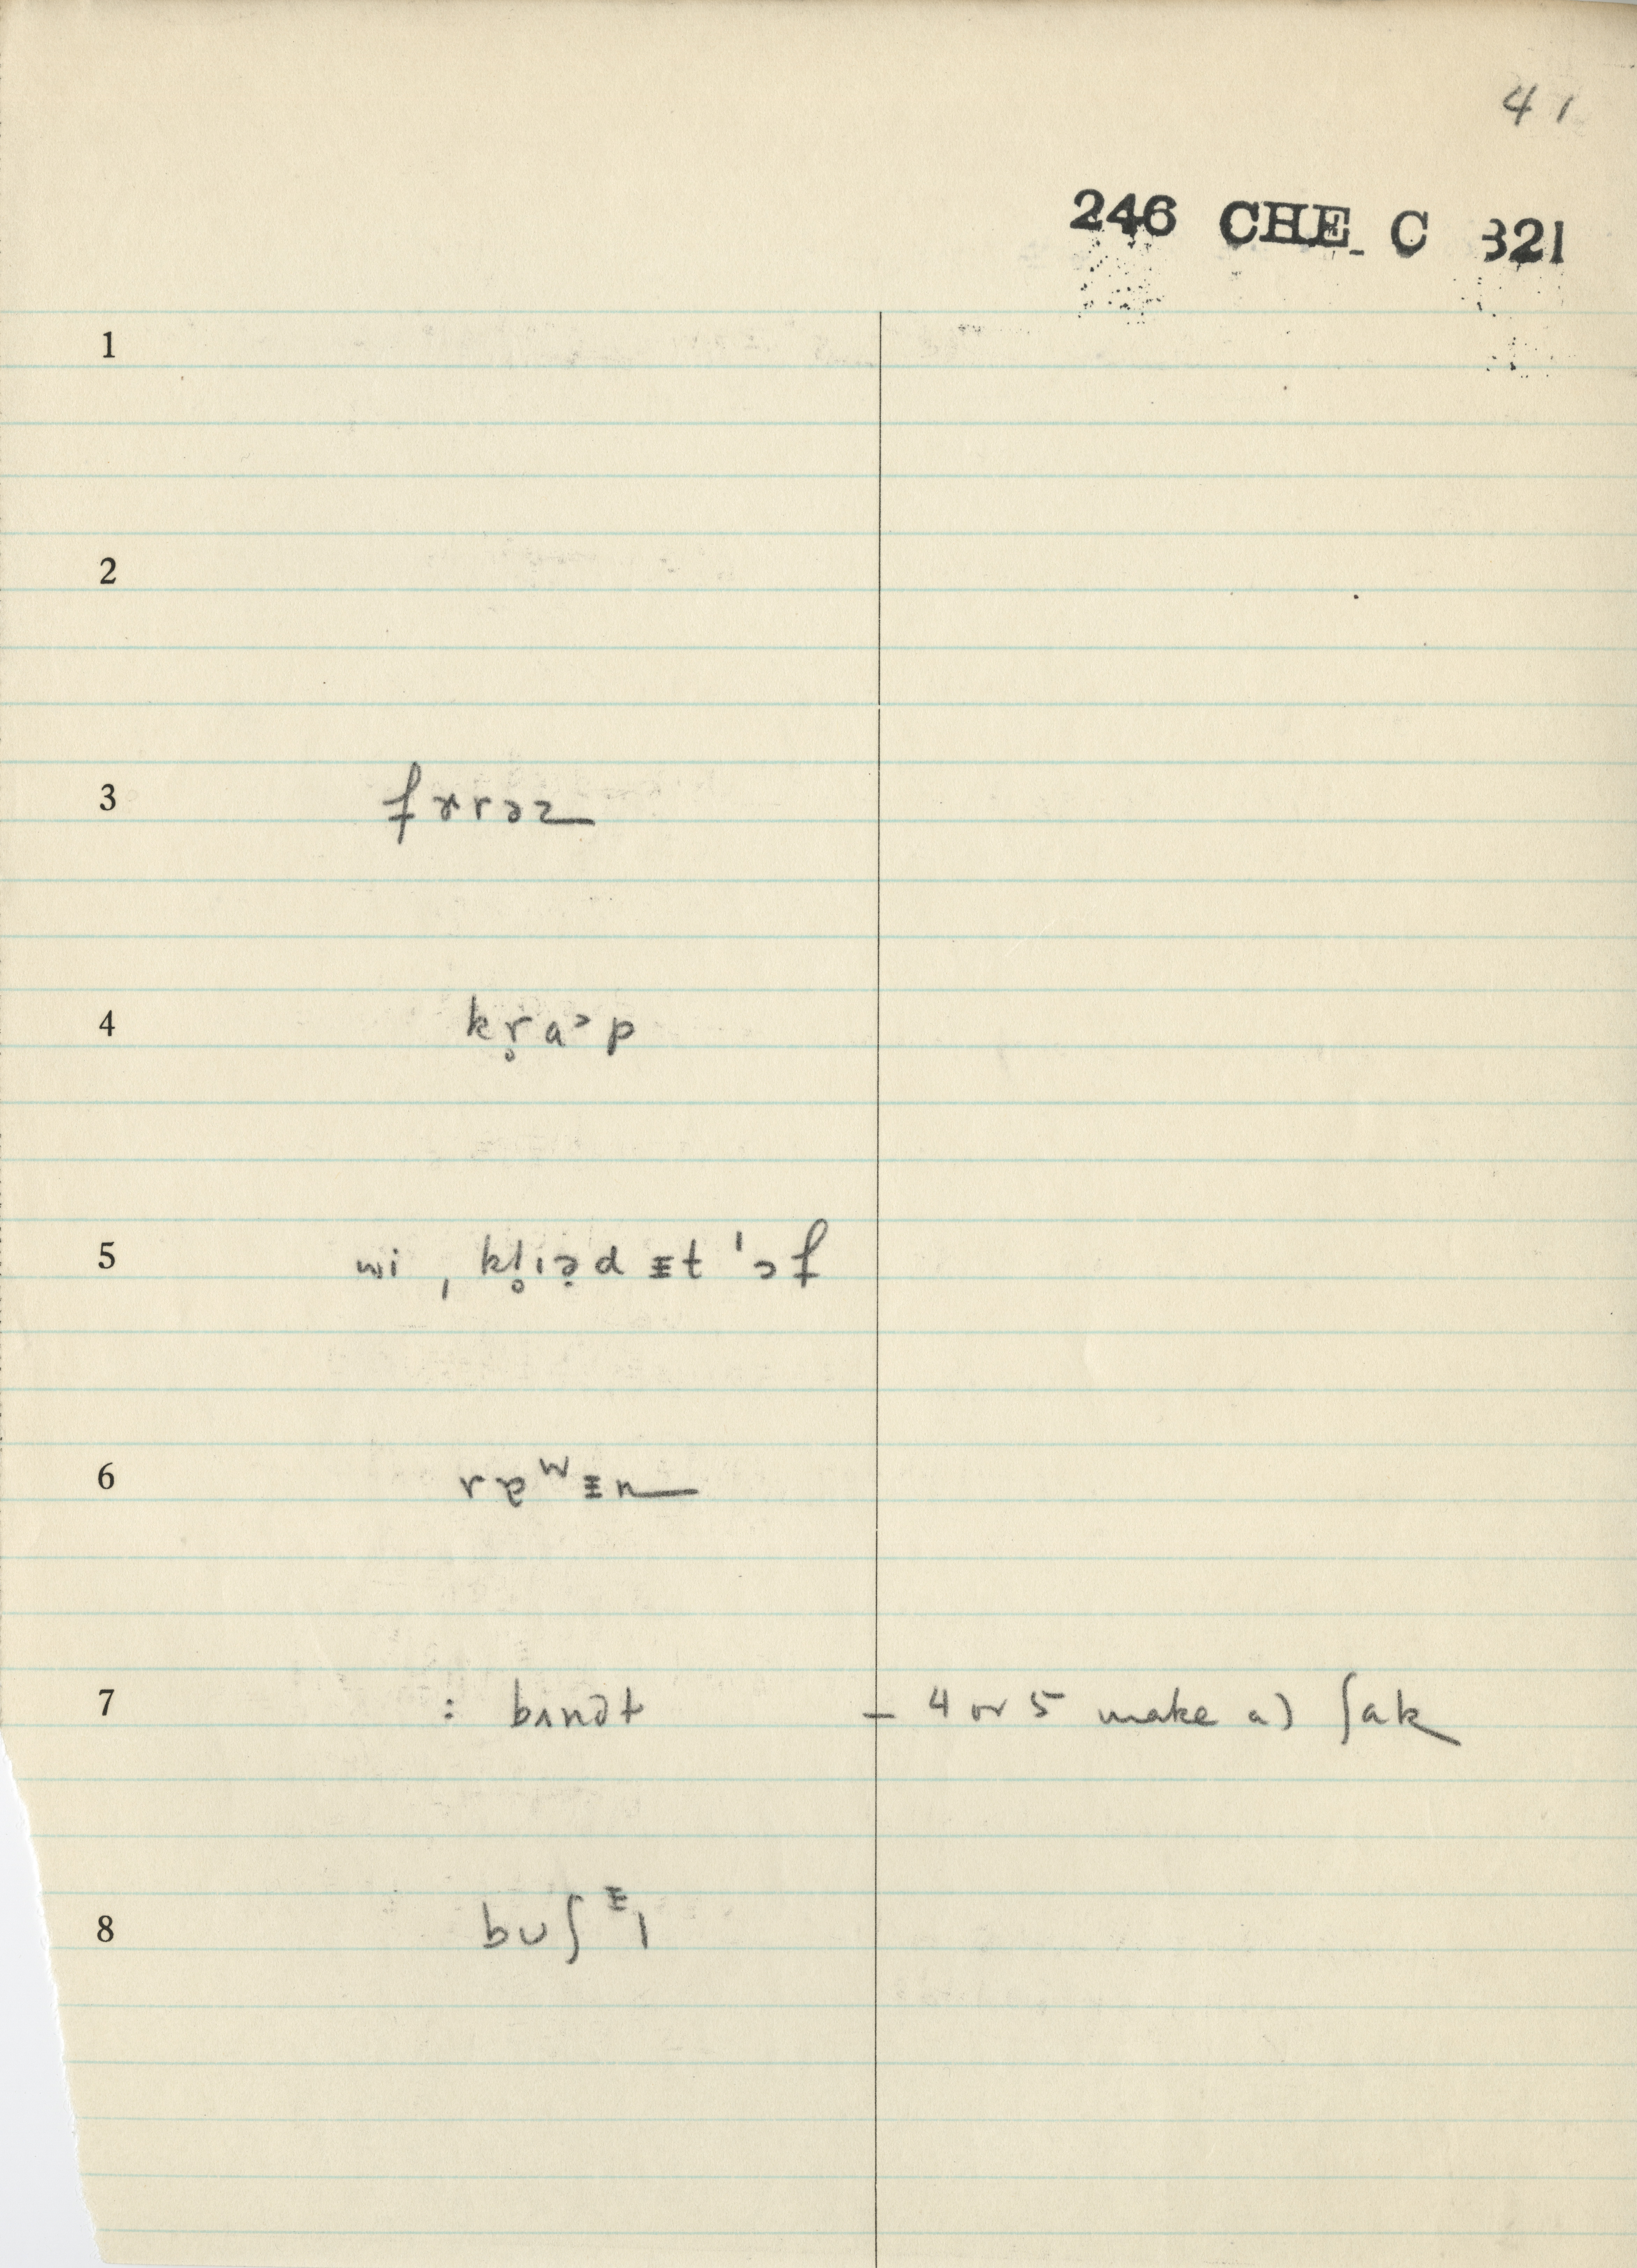 41
246 CHE C 321
1
2
3 fɤrəz
4 kr̥a˃p
5 wi ˌkl̥ɪə̣d ᵻt ˈɔf
6 rɐʷᵻn
7 : bʌndət – 4 or 5 make a) ʃak
8 bʊʃᵻl